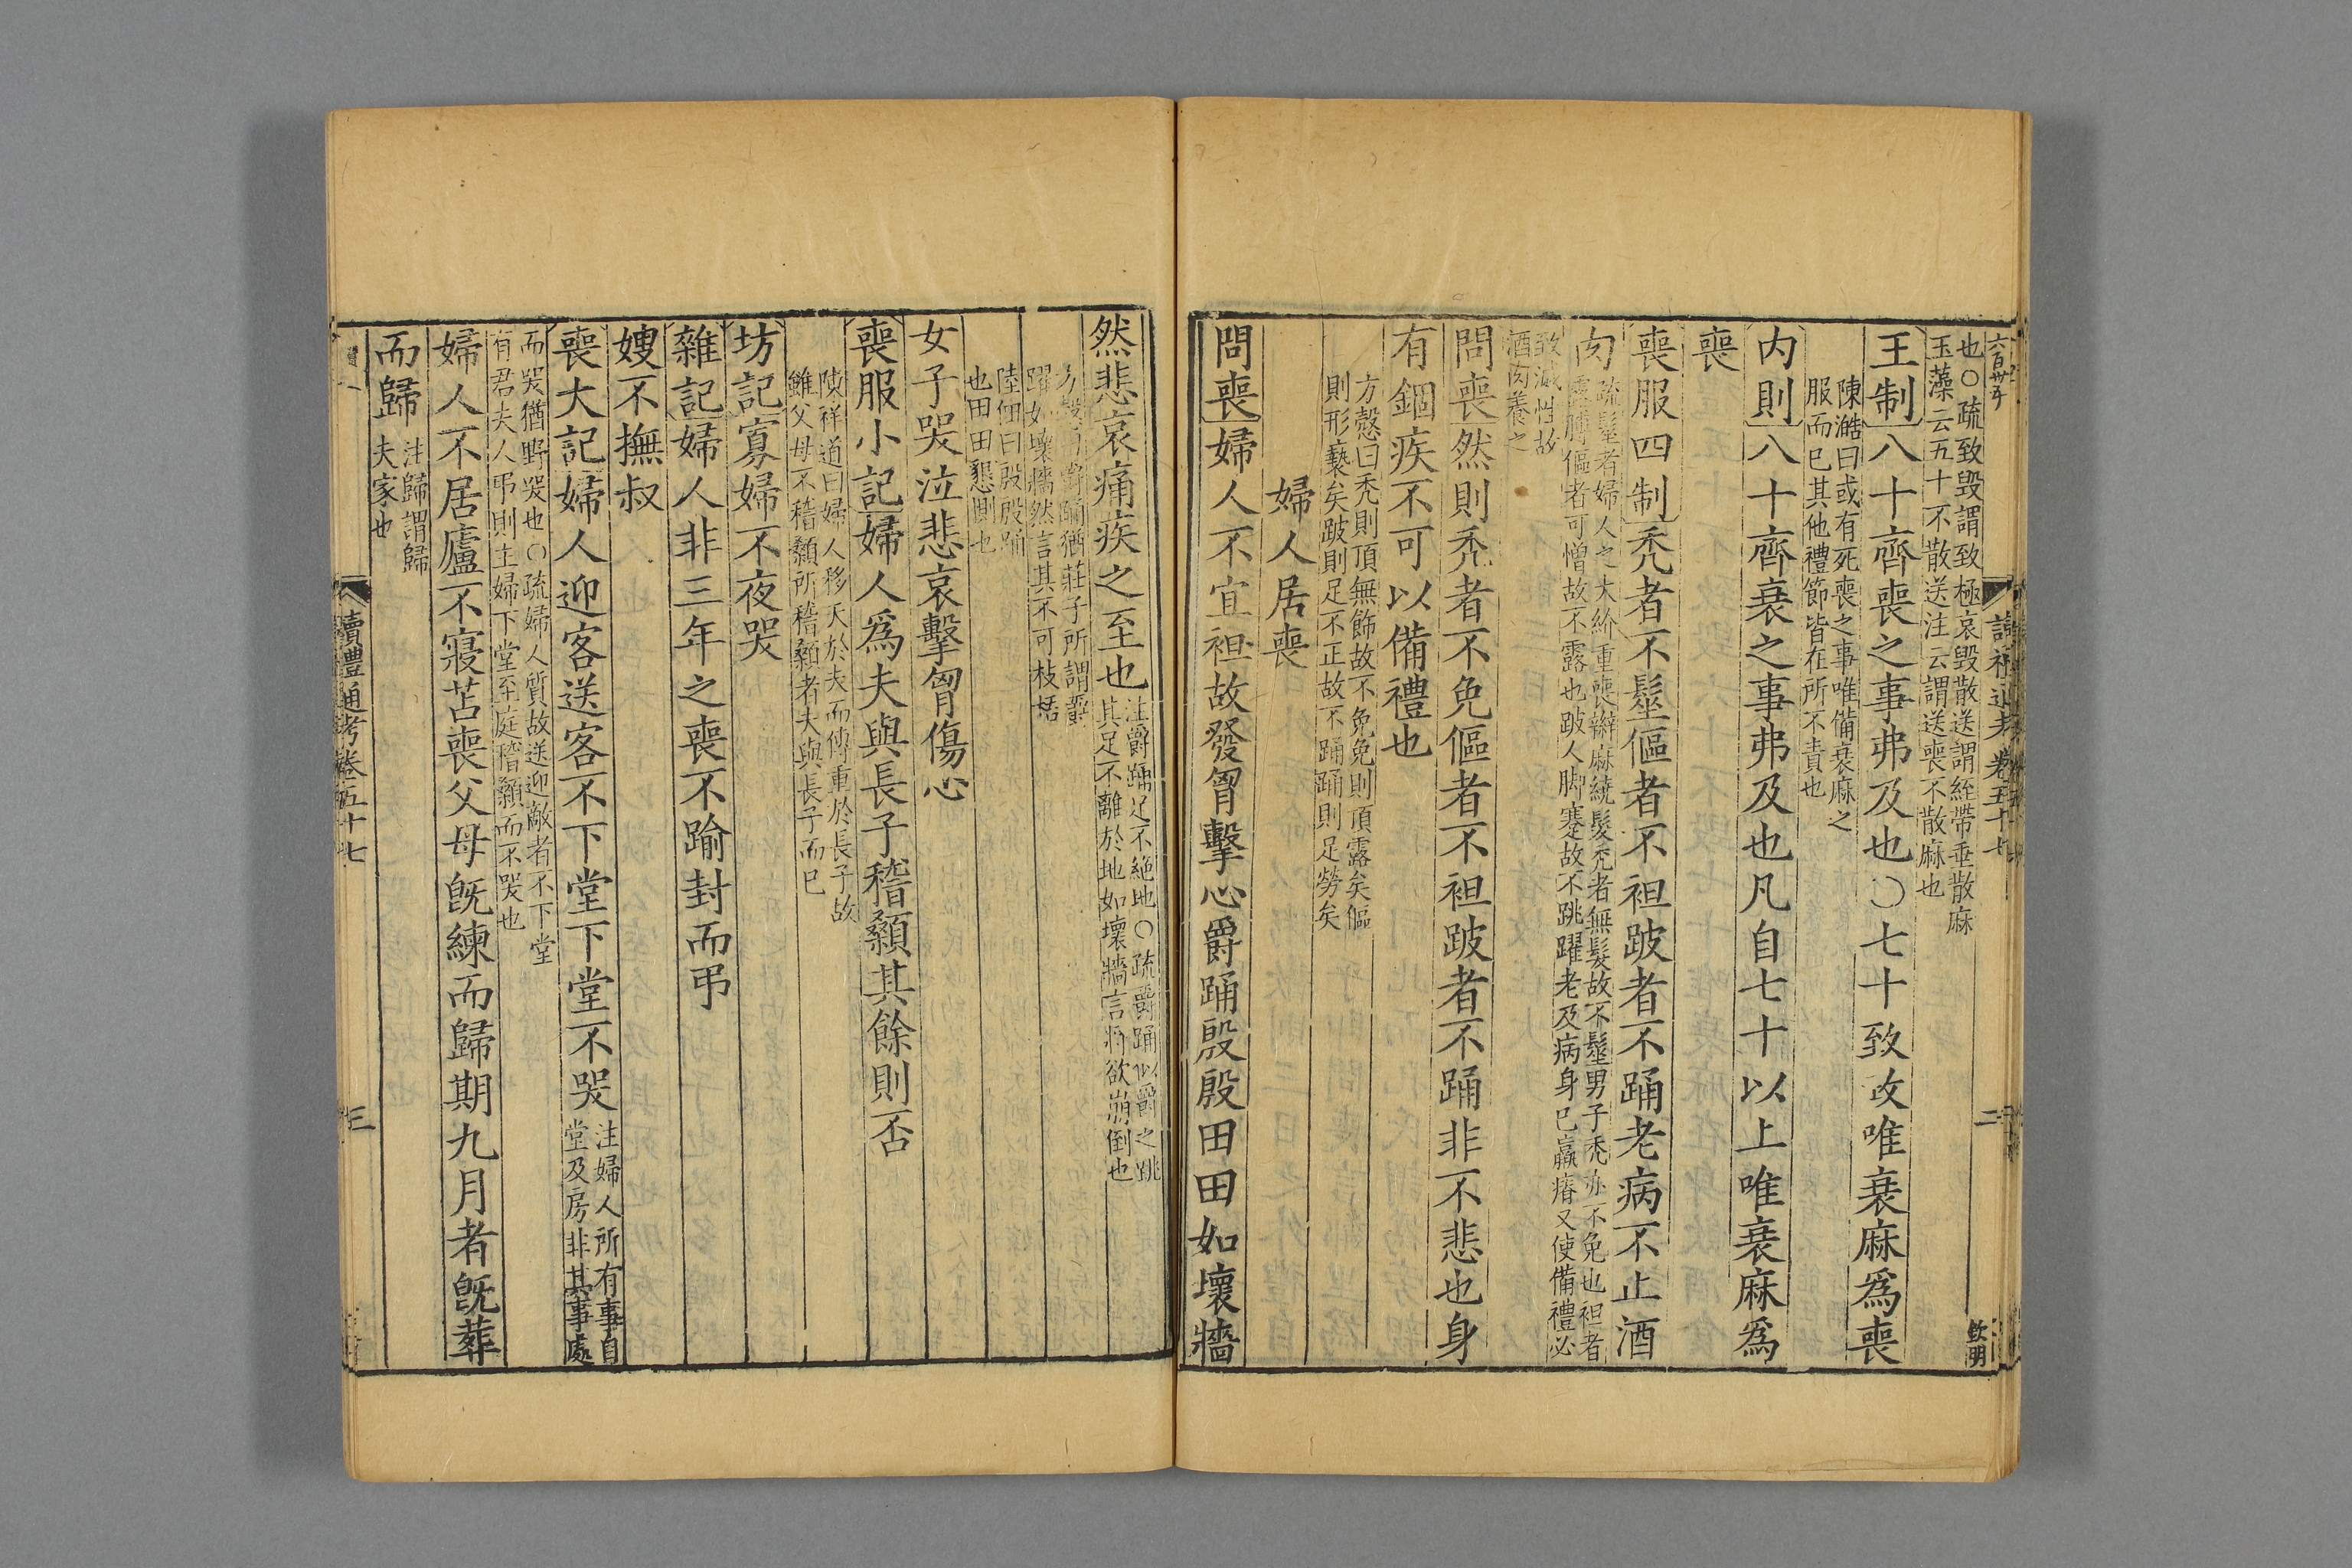 也○疏致毁謂致極哀毁散送謂絰帶垂散麻
玉藻云五十不散送注云謂送喪不散麻也
王制八十齊喪之事弗及也○七十致政唯衰麻爲喪
陳澔曰或有死喪之事唯備衰麻之
服而已其他禮節皆在所不責也
内則八十齊衰之事弗及也凡自七十以上唯衰麻爲
喪
喪服四制禿者不髽傴者不袒跛者不踊老病不止酒
肉
疏髽者婦人之大紒重喪辮麻繞髮禿者無髮故不髽男子禿亦不免也袒者
露膊傴者可憎故不露也跛人脚蹇故不跳躍老及病身已羸瘠又使備禮必
致滅性故
酒肉養之
問喪然則禿者不免傴者不袒跛者不踊非不悲也身
有錮疾不可以備禮也
方慤曰禿則頂無飾故不免免則頂露矣傴
則形褻矣跛則足不正故不踊踊則足勞矣
婦人居喪
問喪婦人不宜袒故發胷擊心爵踊殷殷田田如壞牆
然悲哀痛疾之至也
注爵踊足不絶地○疏爵踊似爵之跳
其足不離於地如壞牆言將欲崩倒也
方慤曰爵踊猶莊子所謂爵
躍如壞牆然言其不可枝梧
陸佃曰殷殷踊
也田田懇惻也
女子哭泣悲哀擊胷傷心
喪服小記婦人爲夫與長子稽顙其餘則否
陳祥道曰婦人移天於夫而傳重於長子故
雖父母不稽顙所稽顙者夫與長子而已
坊記寡婦不夜哭
雜記婦人非三年之喪不踰封而弔
嫂不撫叔
喪大記婦人迎客送客不下堂下堂不哭
注婦人所有事自
堂及房非其事處
而哭猶野哭也○疏婦人質故送迎敵者不下堂
有君夫人弔則主婦下堂至庭稽顙而不哭也
婦人不居廬不寢苫喪父母旣練而歸期九月者旣葬
而歸
注歸謂歸
夫家也
讀禮通考卷五十七
三
六百卅五
卷五十七
二
欽明